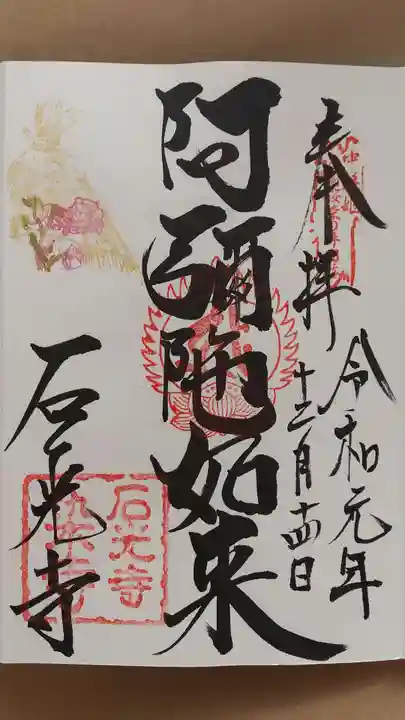 奉拝
令和元年
十二月十四日
阿彌陀如来
石光寺
石光寺